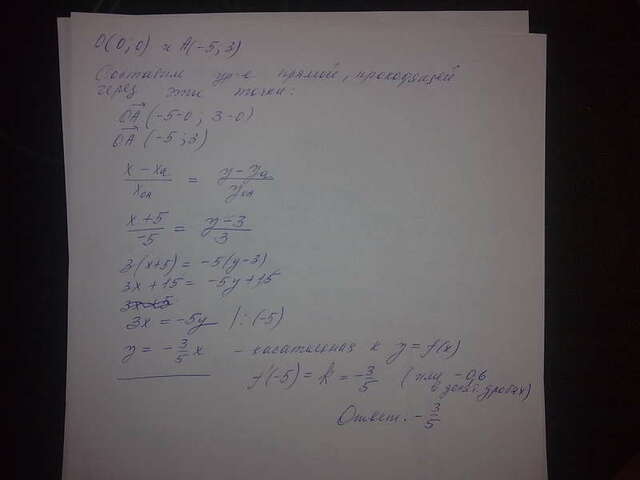 O(0;0) и A(-5;3)
Составим ур-е прямой, проходящей
через эти точки:
OA (-5-0; 3-0)
OA (-5;3)
(x - xa)/xoa = (y - ya)/yoa
(x+5)/-5 = (y-3)/3
3(x+5) = -5(y-3)
3x + 15 = -5y + 15
3x = -5y |:(-5)
y = -3/5 x - касательная к y = f(x)
f'(-5) = k = -3/5 (или -0,6
в дес. дробях)
Ответ. -3/5